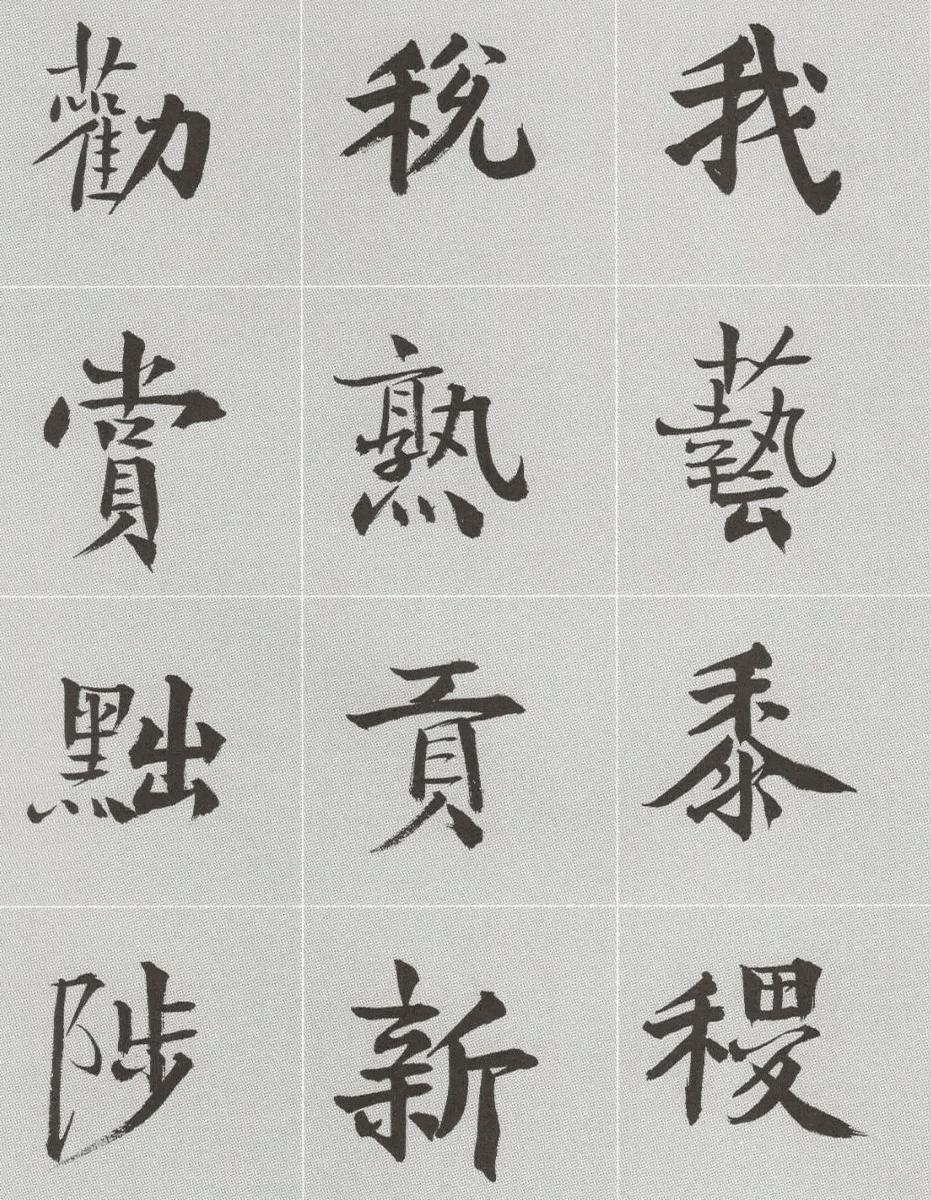 我藝黍稷
稅熟貢新
勸賞黜陟